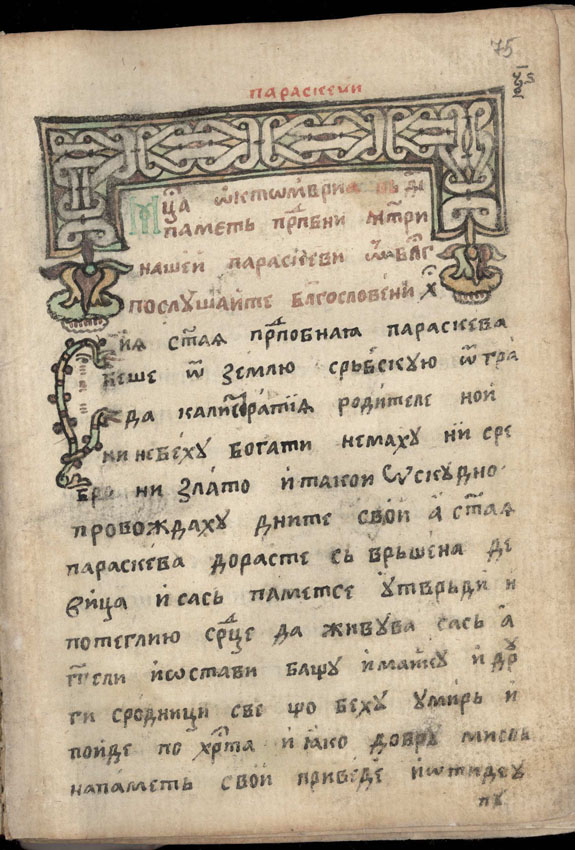 75
параскеѵи
мⷭ҇ца ѡктѡмврїа въ д҃і
паметь прⷣпбни мт҃ри
нашей параскеви ѿч҃е блⷭ҇г
послушайте блгословени хⷭ҇
Сиꙗ ст҃аꙗ прⷣпобнаꙗ параскева
беше ѿ землю срьбскую ѿ гра
да каликратиꙗ родителе ной
ни небеху богати немаху ни сре
бро ни злато и такои ѡскудно
провождаху дните свой а ст҃аꙗ
параскева дорасте сь врьшена де
вица и сась паметсе утврьди и
потеглию срⷣце да живува сась а
гг҃ели и ѡстави башу и майку и дру
ги сродници све що беху умирь и
пойде по хрⷭ҇та и ꙗко добру мисль
напаметь свой приведе и ѡтидеу
пу